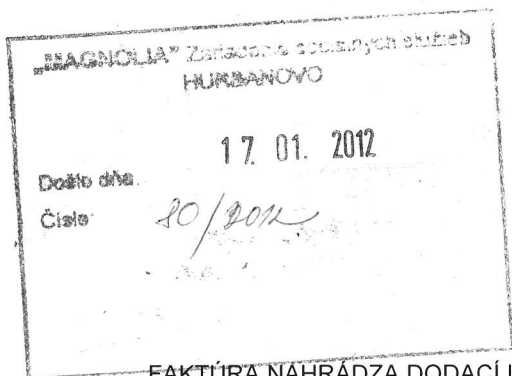 „MAGNÓLIA" Zariadenie sociálnych služieb
HURBANOVO
17. 01. 2012
Došlo dňa
Číslo 80/2012
FAKTÚRA NAHRÁDZA DODACÍ